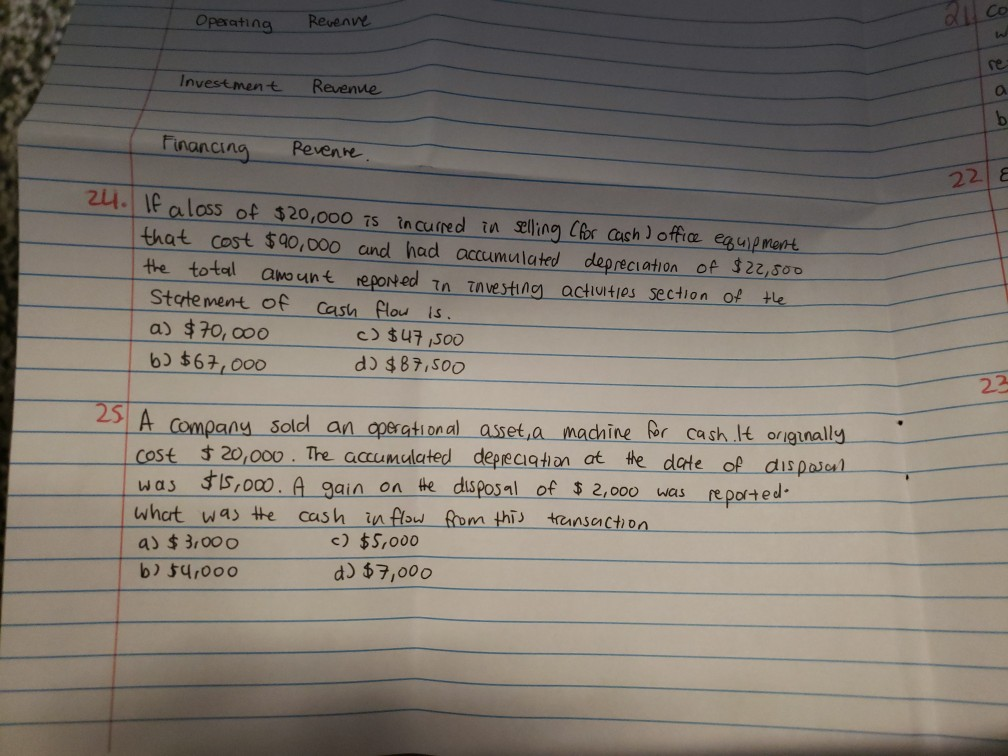 Operating Revenve
Investment Revenue
Financing Revenre.
24. If a loss of $20,000 is incurred in selling (for cash) office equipment
that cost $90,000 and had accumulated depreciation of $22,500
the total amount reported in investing activities section of the
Statement of Cash flow is.
a) $70,000 c) $47,500
b) $67,000 d) $87,500
25 A company sold an operational asset, a machine for cash. It originally
cost $20,000. The accumulated depreciation at the date of disposal
was $15,000. A gain on the disposal of $2,000 was reported.
what was the cash inflow from this transaction
a) $3,000 c) $5,000
b) $4,000 d) $7,000
21 co
w
re
a
b
22
23